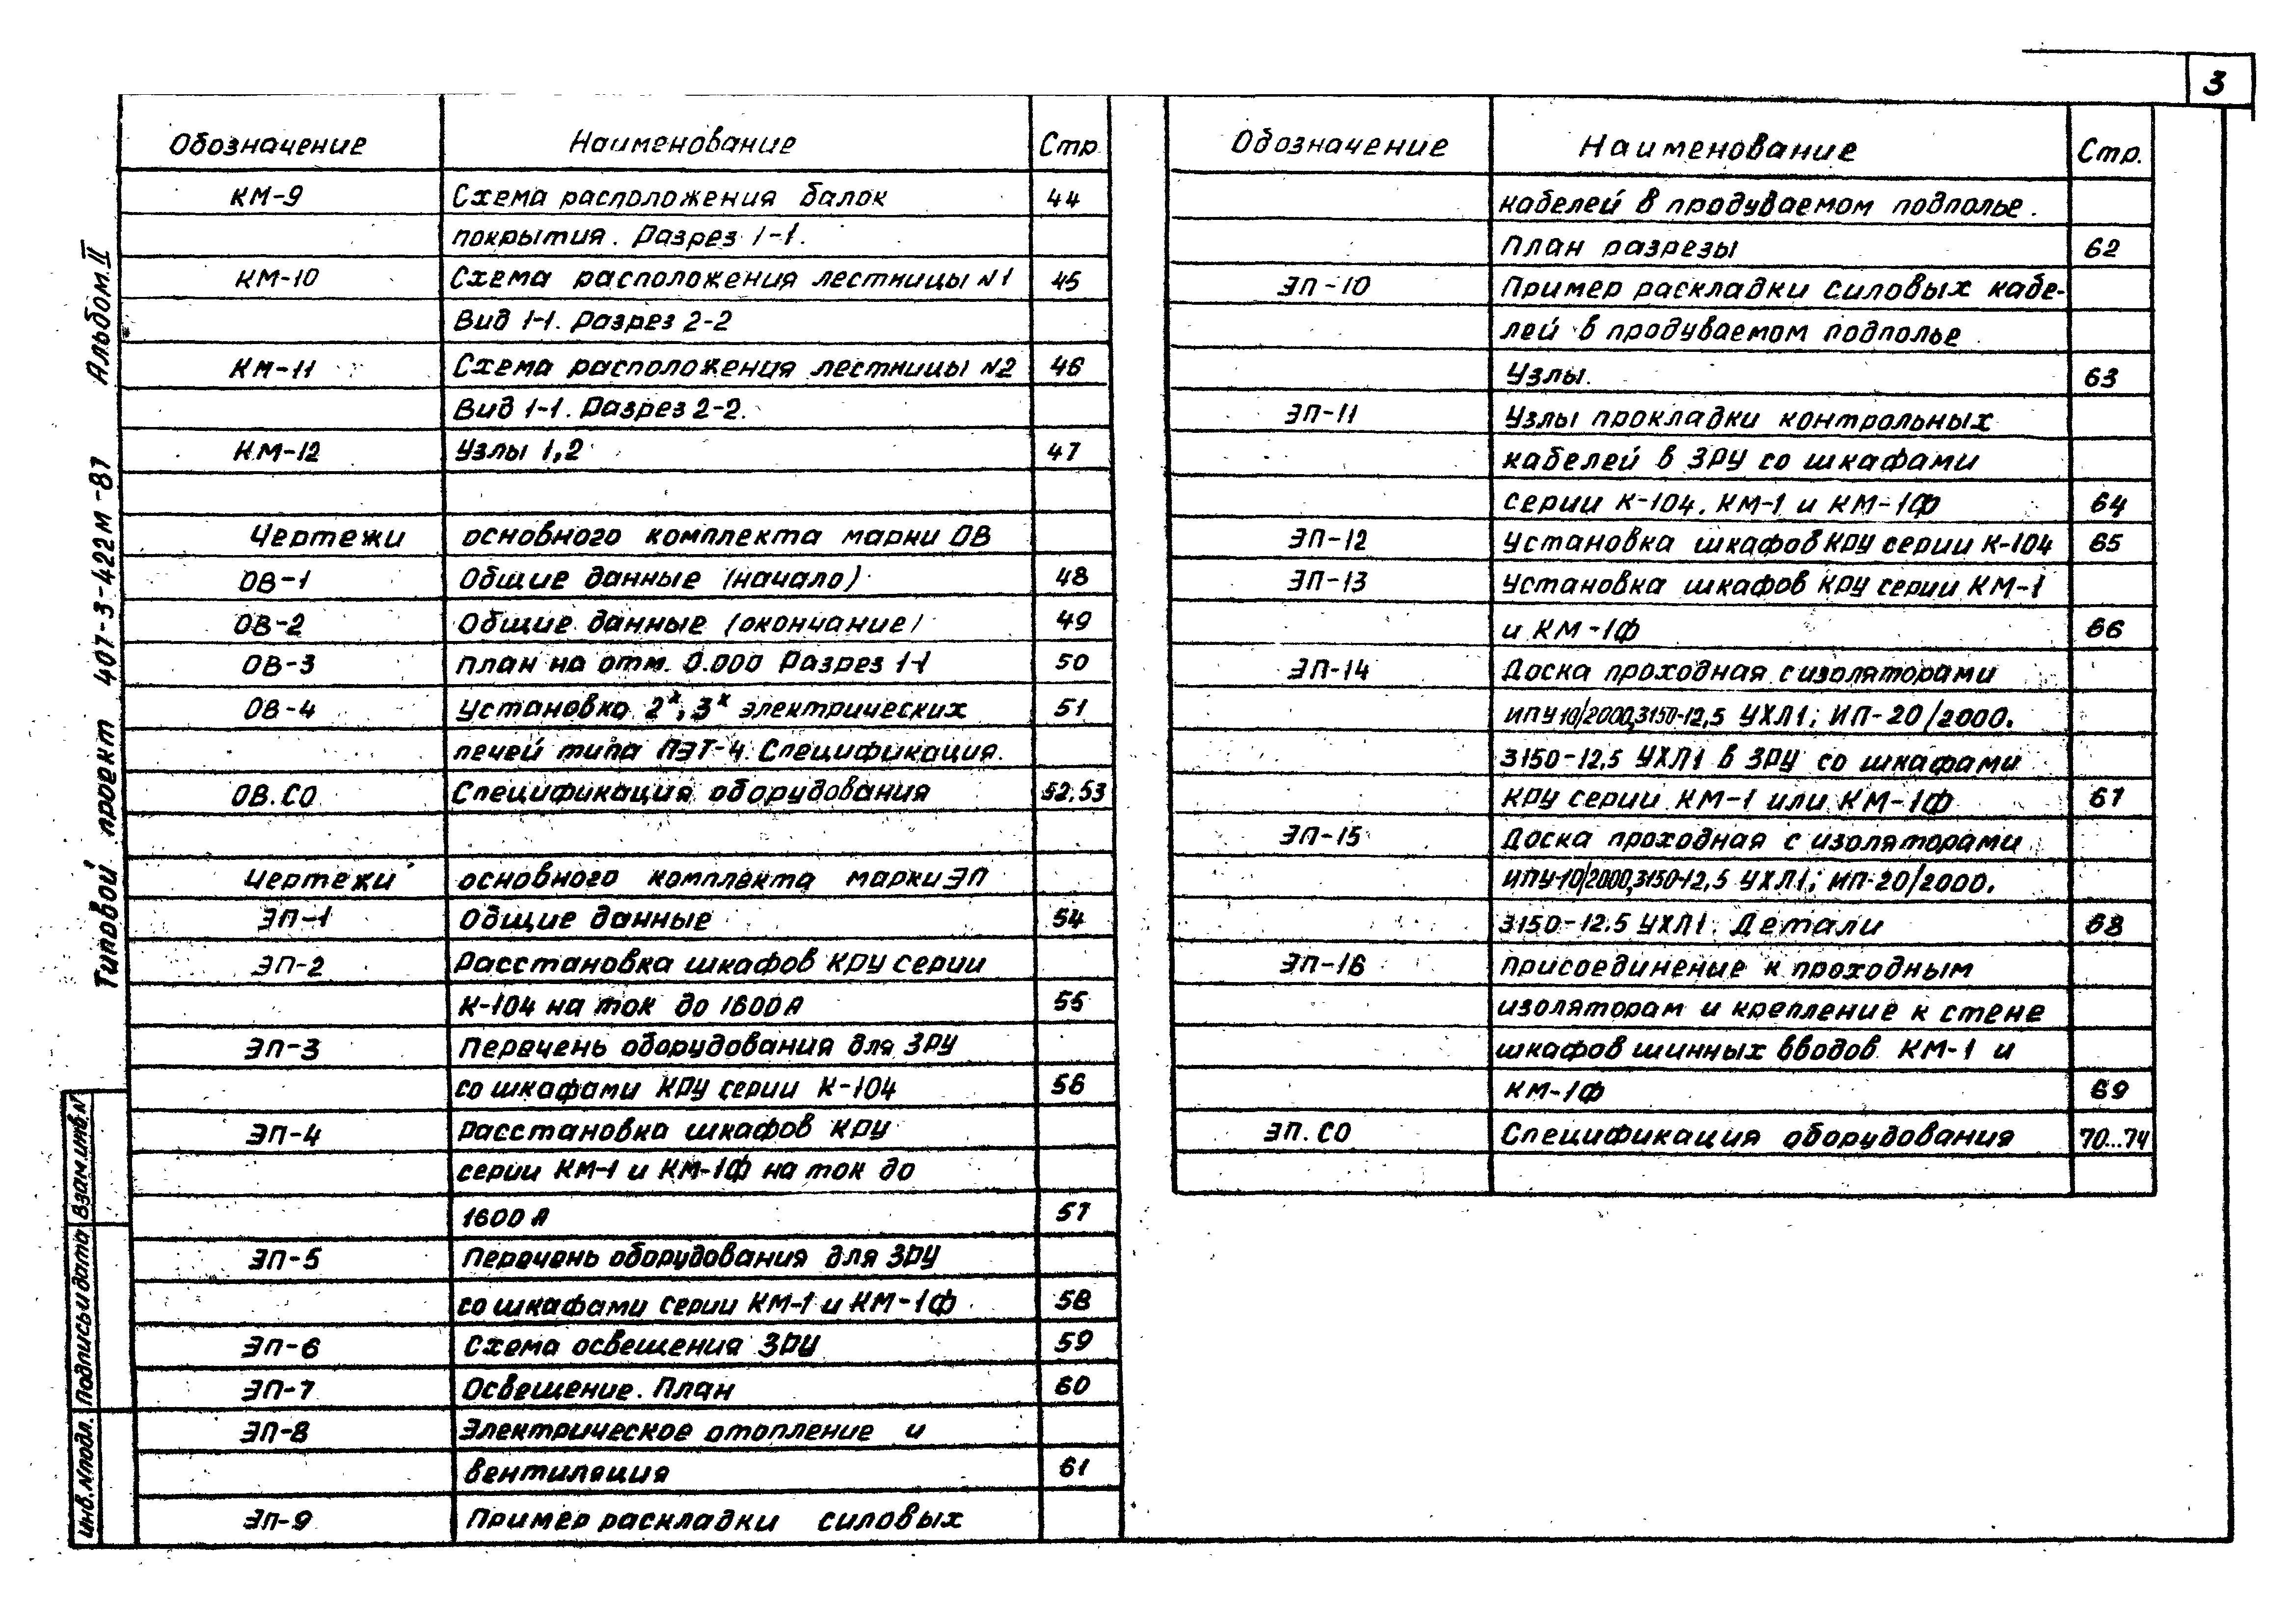 3
Обозначение Наименование Стр
КМ-9 Схема расположения балок 44
покрытия. Разрез 1-1.
КМ-10 Схема расположения лестницы N1 45
Вид 1-1. Разрез 2-2
КМ-11 Схема расположения лестницы N2 46
Вид 1-1. Разрез 2-2.
КМ-12 Узлы 1,2 47
Чертежи основного комплекта марки ОВ
ОВ-1 Общие данные (начало) 48
ОВ-2 Общие данные (окончание) 49
ОВ-3 План на отм. 0.000 Разрез 1-1 50
ОВ-4 Установка 2х, 3х электрических 51
печей типа ПЭТ-4. Спецификация.
ОВ.СО Спецификация оборудования 52,53
Чертежи основного комплекта марки ЭП
ЭП-1 Общие данные 54
ЭП-2 Расстановка шкафов КРУ серии
К-104 на ток до 1600А 55
ЭП-3 Перечень оборудования для ЗРУ
со шкафами КРУ серии К-104 56
ЭП-4 Расстановка шкафов КРУ
серии КМ-1 и КМ-1Ф на ток до
1600 А 57
ЭП-5 Перечень оборудования для ЗРУ
со шкафами серии КМ-1 и КМ-1Ф 58
ЭП-6 Схема освещения ЗРУ 59
ЭП-7 Освещение. План 60
ЭП-8 Электрическое отопление и
вентиляция 61
ЭП-9 Пример раскладки силовых
Обозначение Наименование Стр.
кабелей в продуваемом подполье.
План разрезы 62
ЭП-10 Пример раскладки силовых кабе-
лей в продуваемом подполье
Узлы. 63
ЭП-11 Узлы прокладки контрольных
кабелей в ЗРУ со шкафами
серии К-104, КМ-1 и КМ-1Ф 64
ЭП-12 Установка шкафов КРУ серии К-104 65
ЭП-13 Установка шкафов КРУ серии КМ-1
и КМ-1Ф 66
ЭП-14 Доска проходная с изоляторами
ИПУ10/2000,3150-12,5 УХЛ1; ИП-20/2000.
3150-12,5 УХЛ1 в ЗРУ со шкафами
КРУ серии КМ-1 или КМ-1Ф 67
ЭП-15 Доска проходная с изоляторами
ИПУ-10/2000,3150-12,5 УХЛ1; ИП-20/2000.
3150-12.5 УХЛ1. Детали 68
ЭП-16 Присоединение к проходным
изоляторам и крепление к стене
шкафов шинных вводов КМ-1 и
КМ-1Ф 69
ЭП.СО Спецификация оборудования 70...74
Типовой проект 407-3-422м-87 Альбом II
Инв.Nподл. Подпись и дата Взам.инв.N